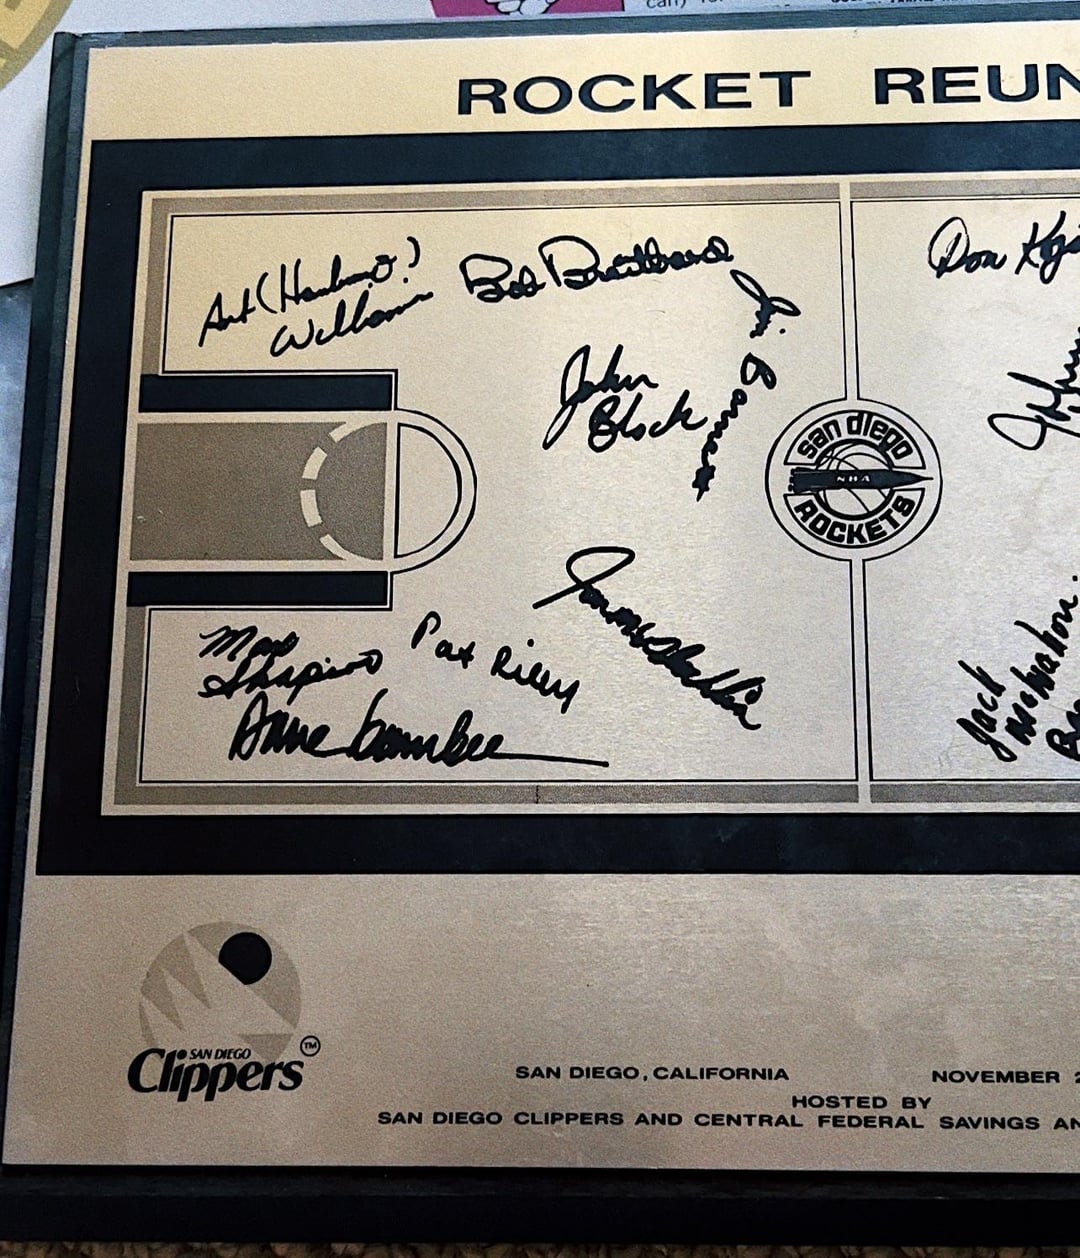 can) to
ROCKET REUN
Art (Hambone)
Williams
Bob Breitbard
Jim Barnett
John
Block
Don Koji
John
san diego
NBA
ROCKETS
Marc
Shapiro
Pat Riley
Jack
McMahon
Clippers
SAN DIEGO
TM
SAN DIEGO, CALIFORNIA
NOVEMBER 2
HOSTED BY
SAN DIEGO CLIPPERS AND CENTRAL FEDERAL SAVINGS AN